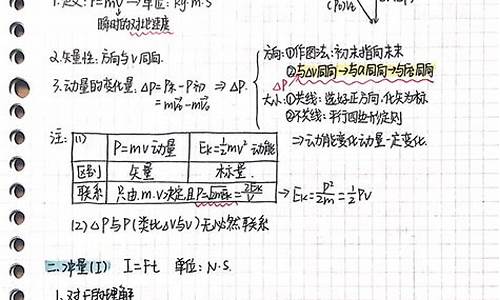 P=mv → 单位: kg·m·s
瞬时的对地速度
(P₀)v₀
2.矢量性:方向与v同向.
3.动量的变化量: ΔP=P末-P初 ⇒ ΔP
=mv末-mv₀
方向:①作图法:初末指向未来
②与Δv同向→与a同向→与F合同向
ΔP
大小:①共线:选好正方向,化矢为标
②不共线:平行四边形定则
⇒动能变化动量一定变化.
注: (1)
P=mv 动量 Ek=½mv² 动能
区别 矢量 标量.
联系 只由.m.v.决定且P=√2mEk=2Ek/v → Ek=P²/2m=½Pv
(2) ΔP与P(类比Δv与v)无必然联系
二.冲量(I) I=Ft 单位: N·S.
1.对F的理解